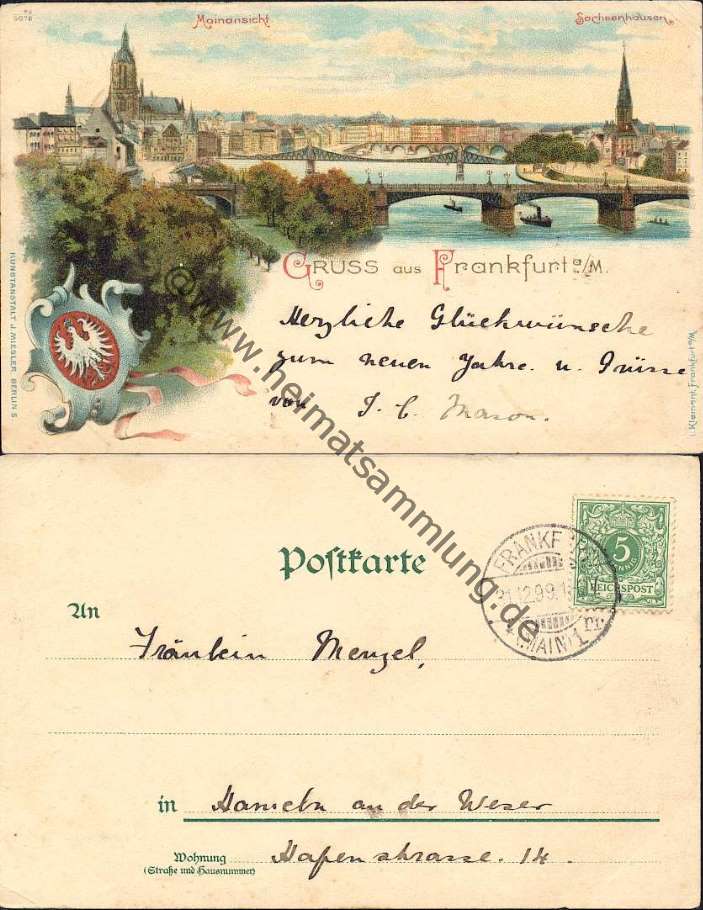 5078
Mainansicht
Sachsenhausen
GRUSS aus Frankfurt a/M.
Herzliche Glückwünsche
zum neuen Jahre. u. Grüsse
von J. C. Mason.
KUNSTANSTALT J. MIESLER, BERLIN S
L. Klement, Frankfurt a/M
@www.heimatsammlung.de
Postkarte
FRANKF
21.12.99.
(MAIN) 1
5
REICHSPOST
An
Fräulein Menzel,
in Hameln an der Weser
Wohnung
(Straße und Hausnummer)
Hafenstrasse. 14.